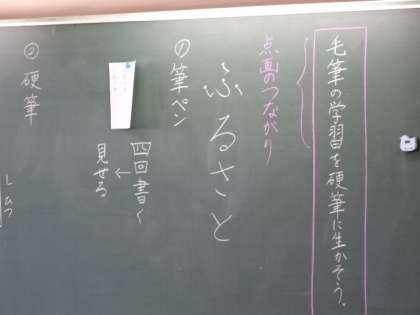 毛筆の学習を硬筆に生かそう。
点画のつながり
ふるさと
①筆ペン
四回書く
↓
見せる
②硬筆